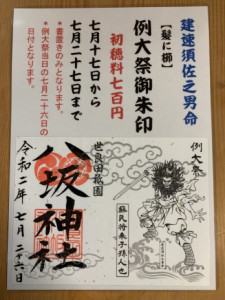 建速須佐之男命
【髪に櫛】
例大祭御朱印
初穂料七百円
七月十七日から
七月二十七日まで
＊書置きのみとなります。
＊例大祭当日の七月二十六日の
日付となります。
例大祭
蘇民将来子孫人也
世良田祇園
八坂神社
令和二年 七月 二十六日